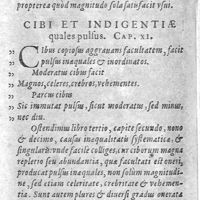 propterea quòd magnitudo sola satisfacit usui.
CIBI ET INDIGENTIÆ
quales pulsus. CAP. XI.
„ Cibus copiosus aggravans facultatem, facit
„ pulsus inæquales & inordinatos.
Moderatus cibus facit
„ Magnos, celeres, crebros, vehementes.
Parcus cibus
„ Sic immutat pulsus, sicut moderatus, sed minus,
„ nec diu.
Ostendimus libro tertio, capite secundo, nono
& decimo, causas inæqualitatis systematicæ, &
singularis: unde facile colliges, cur ciborum magna
repletio seu abundantia, quæ facultati est oneri,
producat pulsus inæquales, non solùm magnitudine,
sed etiam celeritate, crebritate & vehementia.
Sunt autem plures & diversi gradus onerata